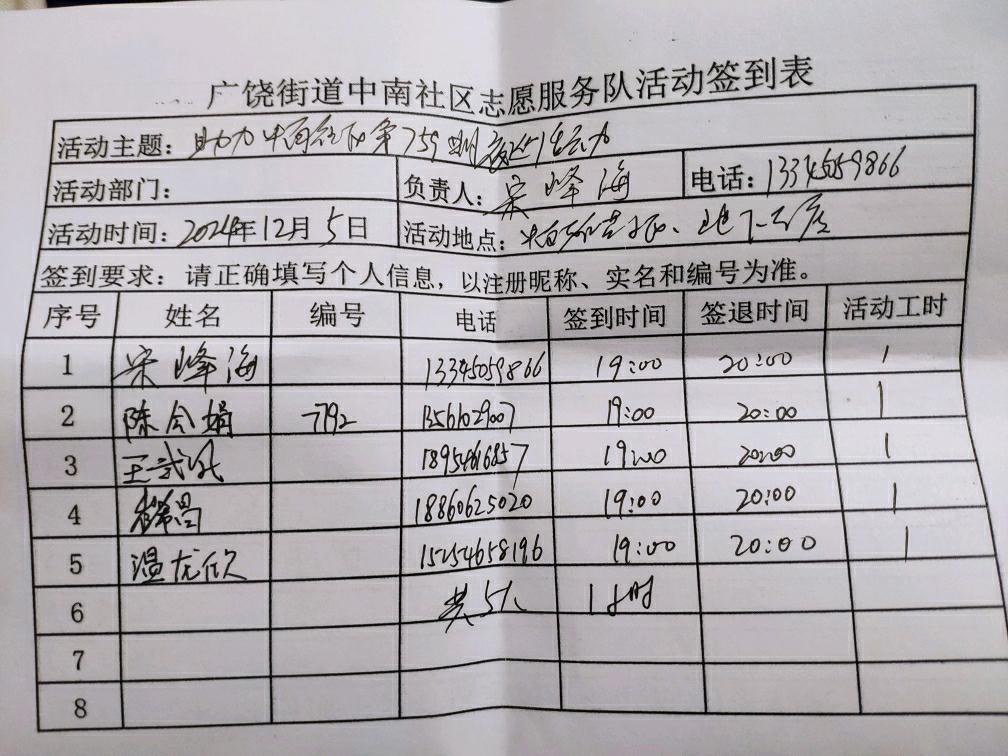 广饶街道中南社区志愿服务队活动签到表
活动主题：助力 第759期夜巡
活动部门： 负责人：宋峰海 电话：13345059866
活动时间：2024年12月5日 活动地点：
签到要求：请正确填写个人信息，以注册昵称、实名和编号为准。
序号 姓名 编号 电话 签到时间 签退时间 活动工时
1 宋峰海 13345059866 19:00 20:00 1
2 陈会娟 7792 13561029007 19:00 20:00 1
3 王武 19:00 20:00 1
4 18860625020 19:00 20:00 1
5 温龙欣 15254658196 19:00 20:00 1
6 共5人 1小时
7
8